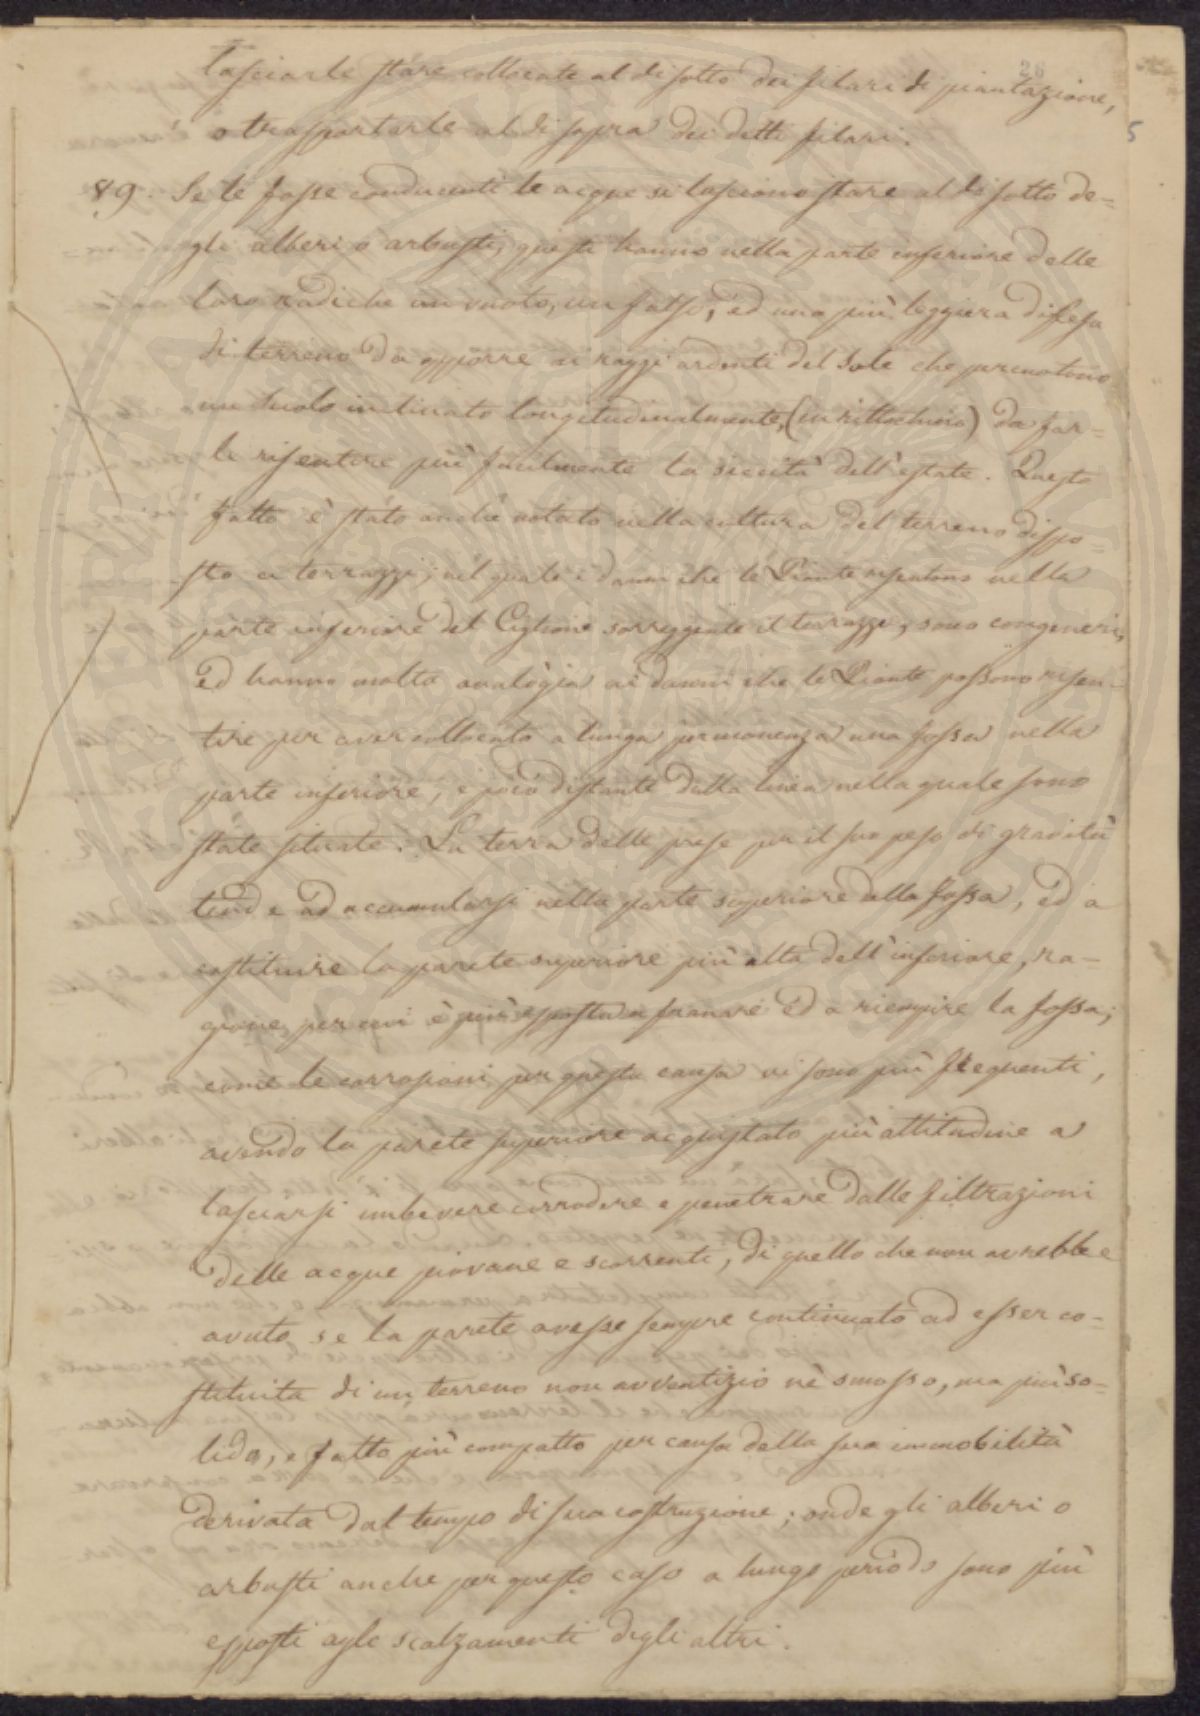 26
lasciarle stare collocate al di sotto dei filari di piantazione,
o trasportarle al di sopra dei detti filari.
89. Se le fosse conducenti le acque si lasciono stare al di sotto de=
gli alberi o arbusti, questi hanno nella parte inferiore delle
loro radiche un vuoto, un falso, ed una più leggiera difesa
di terreno da opporre ai raggi ardenti del Sole che percuotono
un suolo inclinato longitudinalmente, (in rittochino) da far=
le risentire più facilmente la siccità dell'estate. Questo
fatto è stato anche notato nella cultura del terreno dispo=
sto a terrazzi; nel quale i danni che le Piante risentono nella
parte inferiore del Ciglione sorreggente il terrazzo, sono congeneri,
ed hanno molta analogia ai danni che le Piante possono risen=
tire per aver collocato a lunga permanenza una fossa nella
parte inferiore, e poco distante dalla linea nella quale sono
state situate. La terra delle prese per il suo peso di gravità
tende ad accumularsi nella parte superiore della fossa, ed a
costituire la parete superiore più alta dell'inferiore, ra=
gione per cui è più esposta a franare ed a riempire la fossa;
come le corrosioni per questa causa vi sono più frequenti,
avendo la parete superiore acquistato più attitudine a
lasciarsi imbevere corrodere e penetrare dalle filtrazioni
delle acque piovane e scorrenti, di quello che non avrebbe
avuto se la parete avesse sempre continuato ad esser co=
stituita di un terreno non avventizio nè smosso, ma più so=
lido, e fatto più compatto per causa della sua immobilità
derivata dal tempo di sua costruzione; onde gli alberi o
arbusti anche per questo caso a lungo periodo sono più
esposti agli scalzamenti degli altri.
5